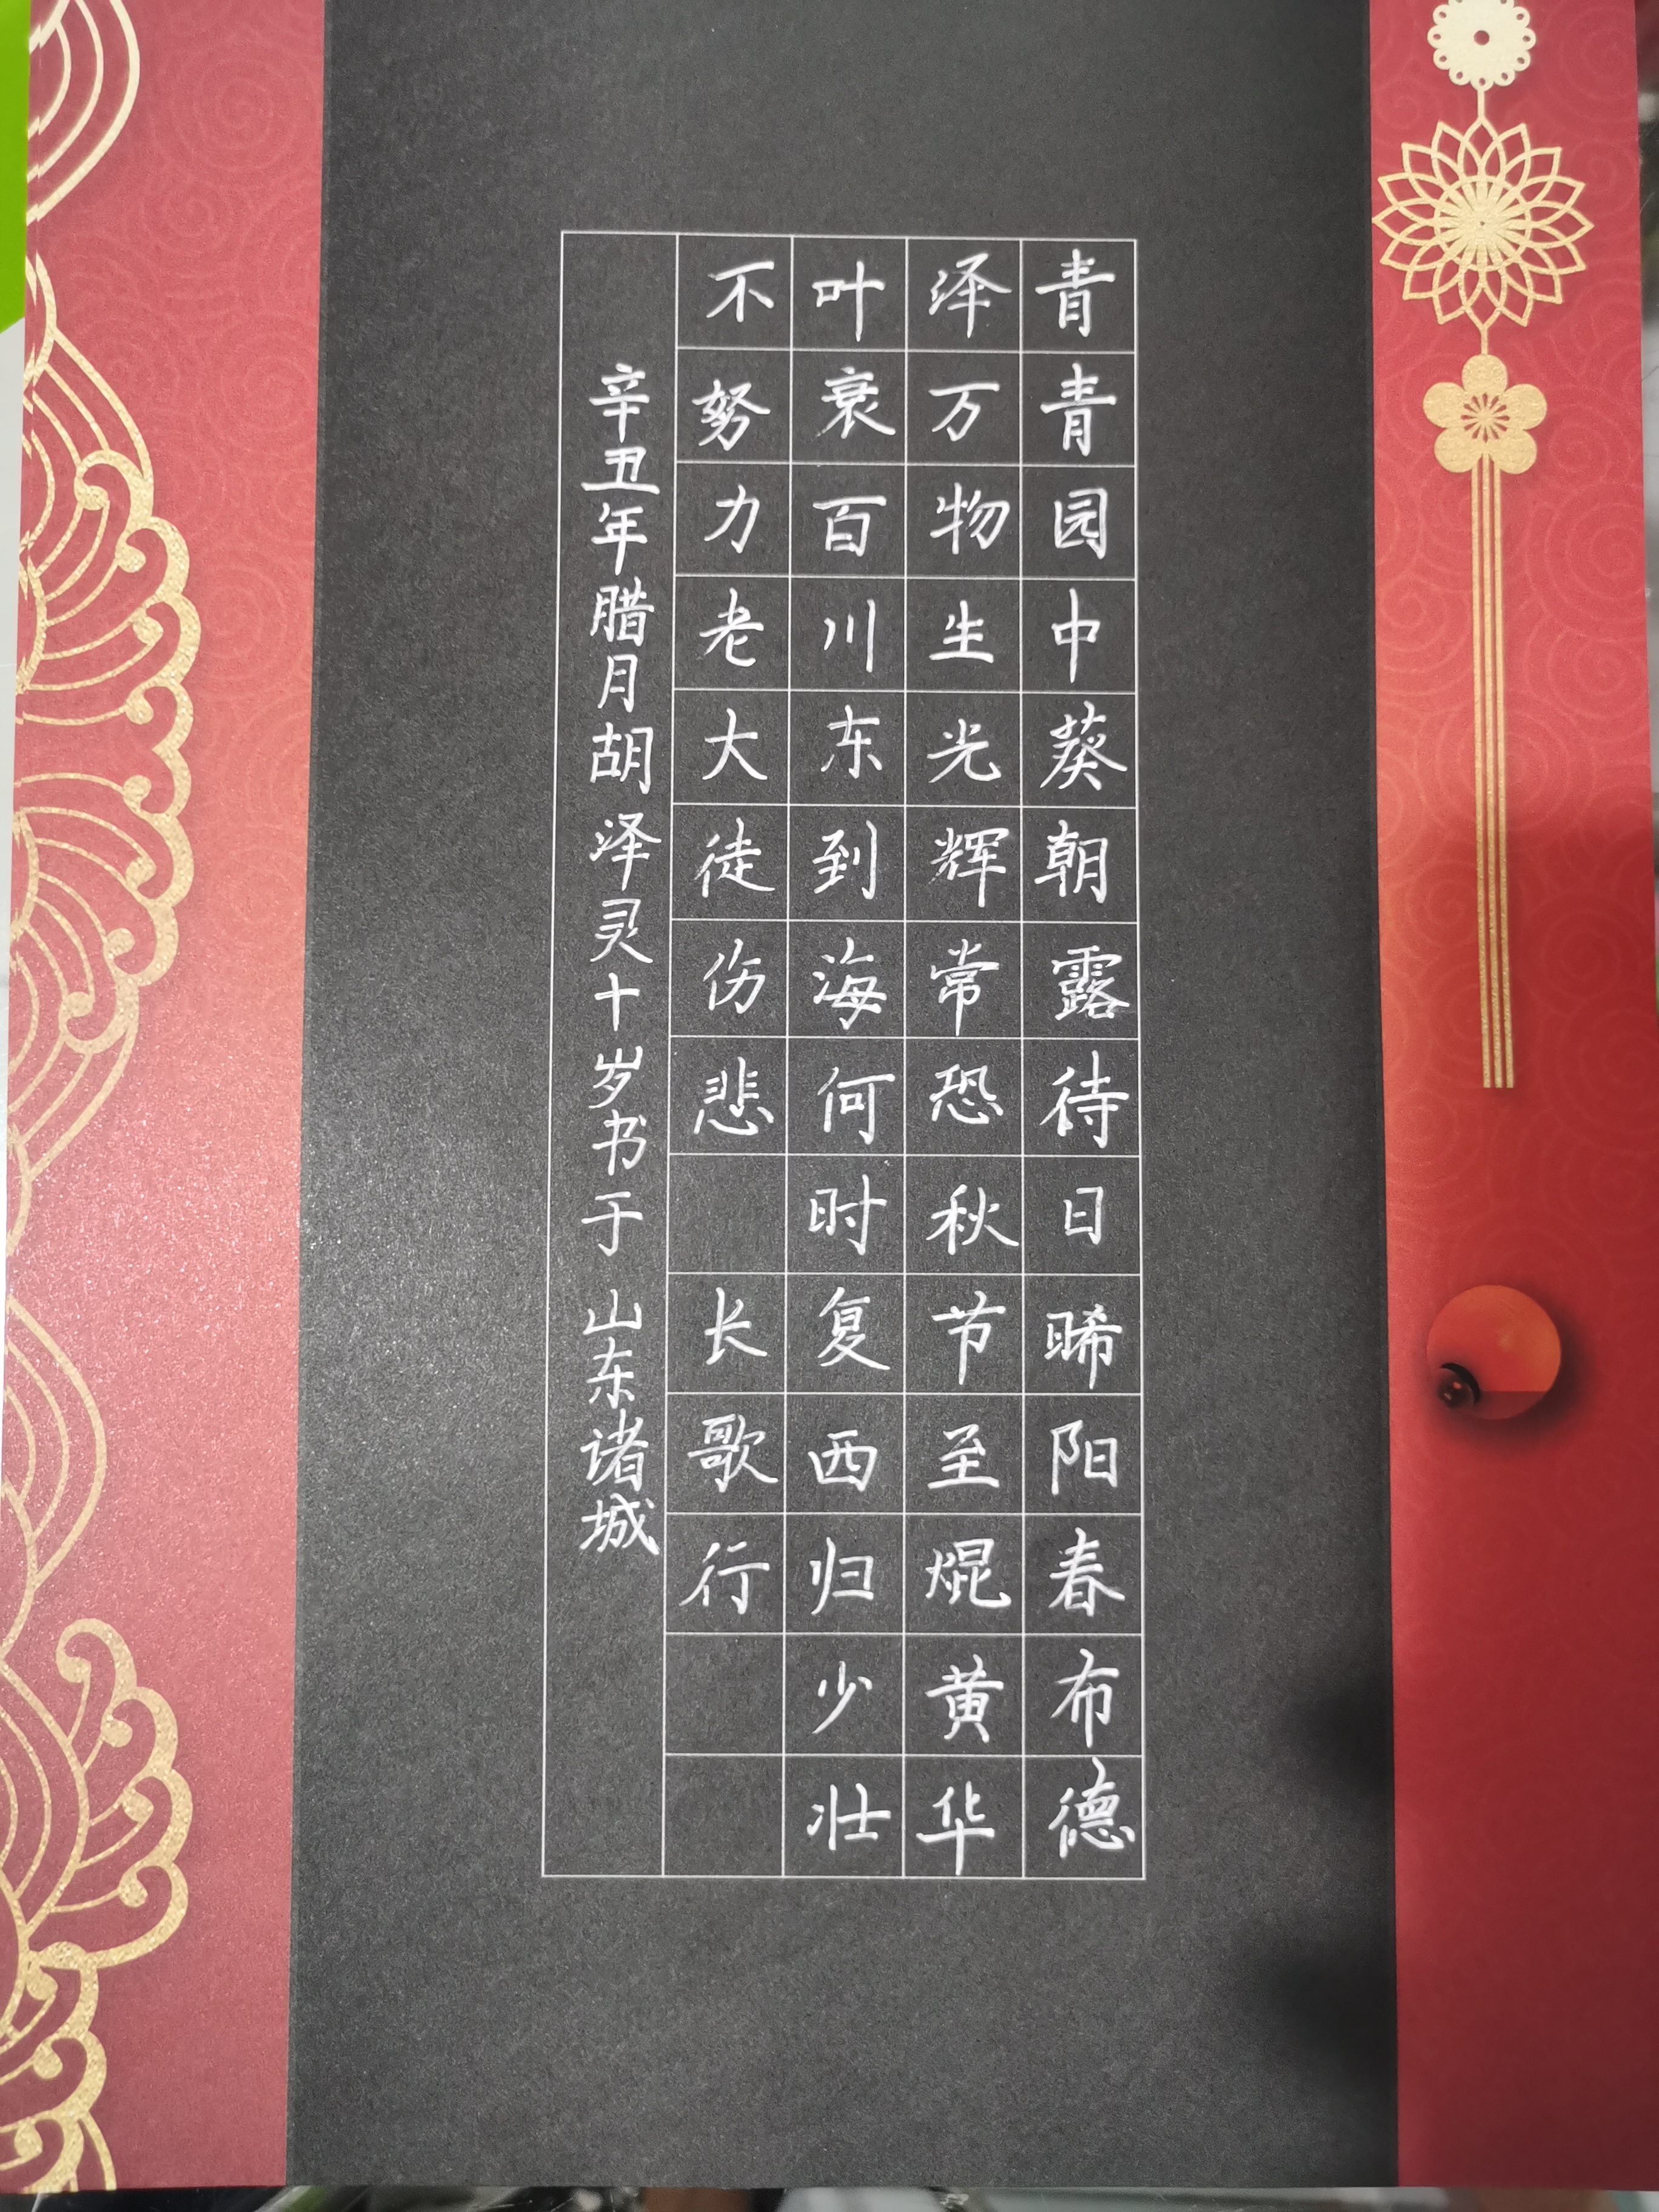 青青园中葵朝露待日晞阳春布德
泽万物生光辉常恐秋节至焜黄华
叶衰百川东到海何时复西归少壮
不努力老大徒伤悲 长歌行
辛丑年腊月胡泽灵十岁书于山东诸城